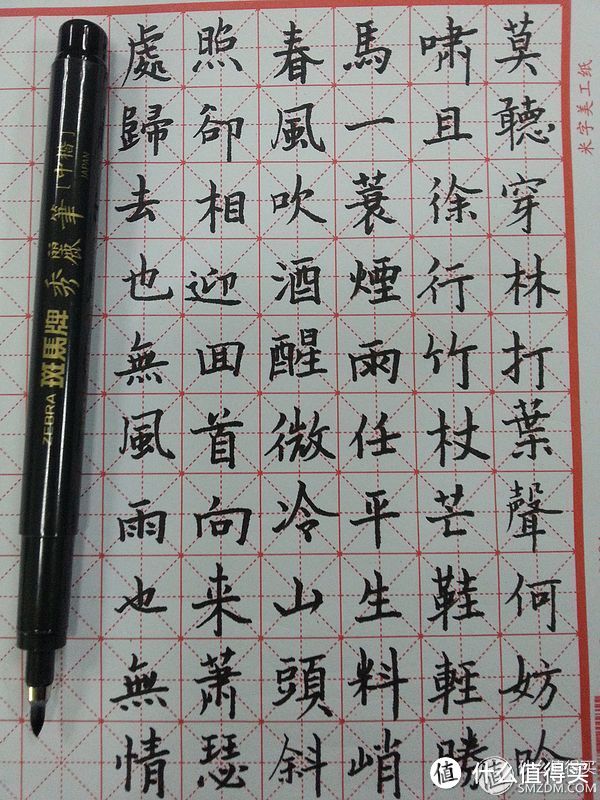 莫聽穿林打葉聲何妨吟
嘯且徐行竹杖芒鞋輕勝
馬一蓑煙雨任平生料峭
春風吹酒醒微冷山頭斜
照卻相迎囬首向来蕭瑟
處歸去也無風雨也無情
米字美工纸
ZEBRA 斑馬牌 秀麗筆 [中楷] JAPAN
值 什么值得买
值 什么值得买
SMZDM.COM